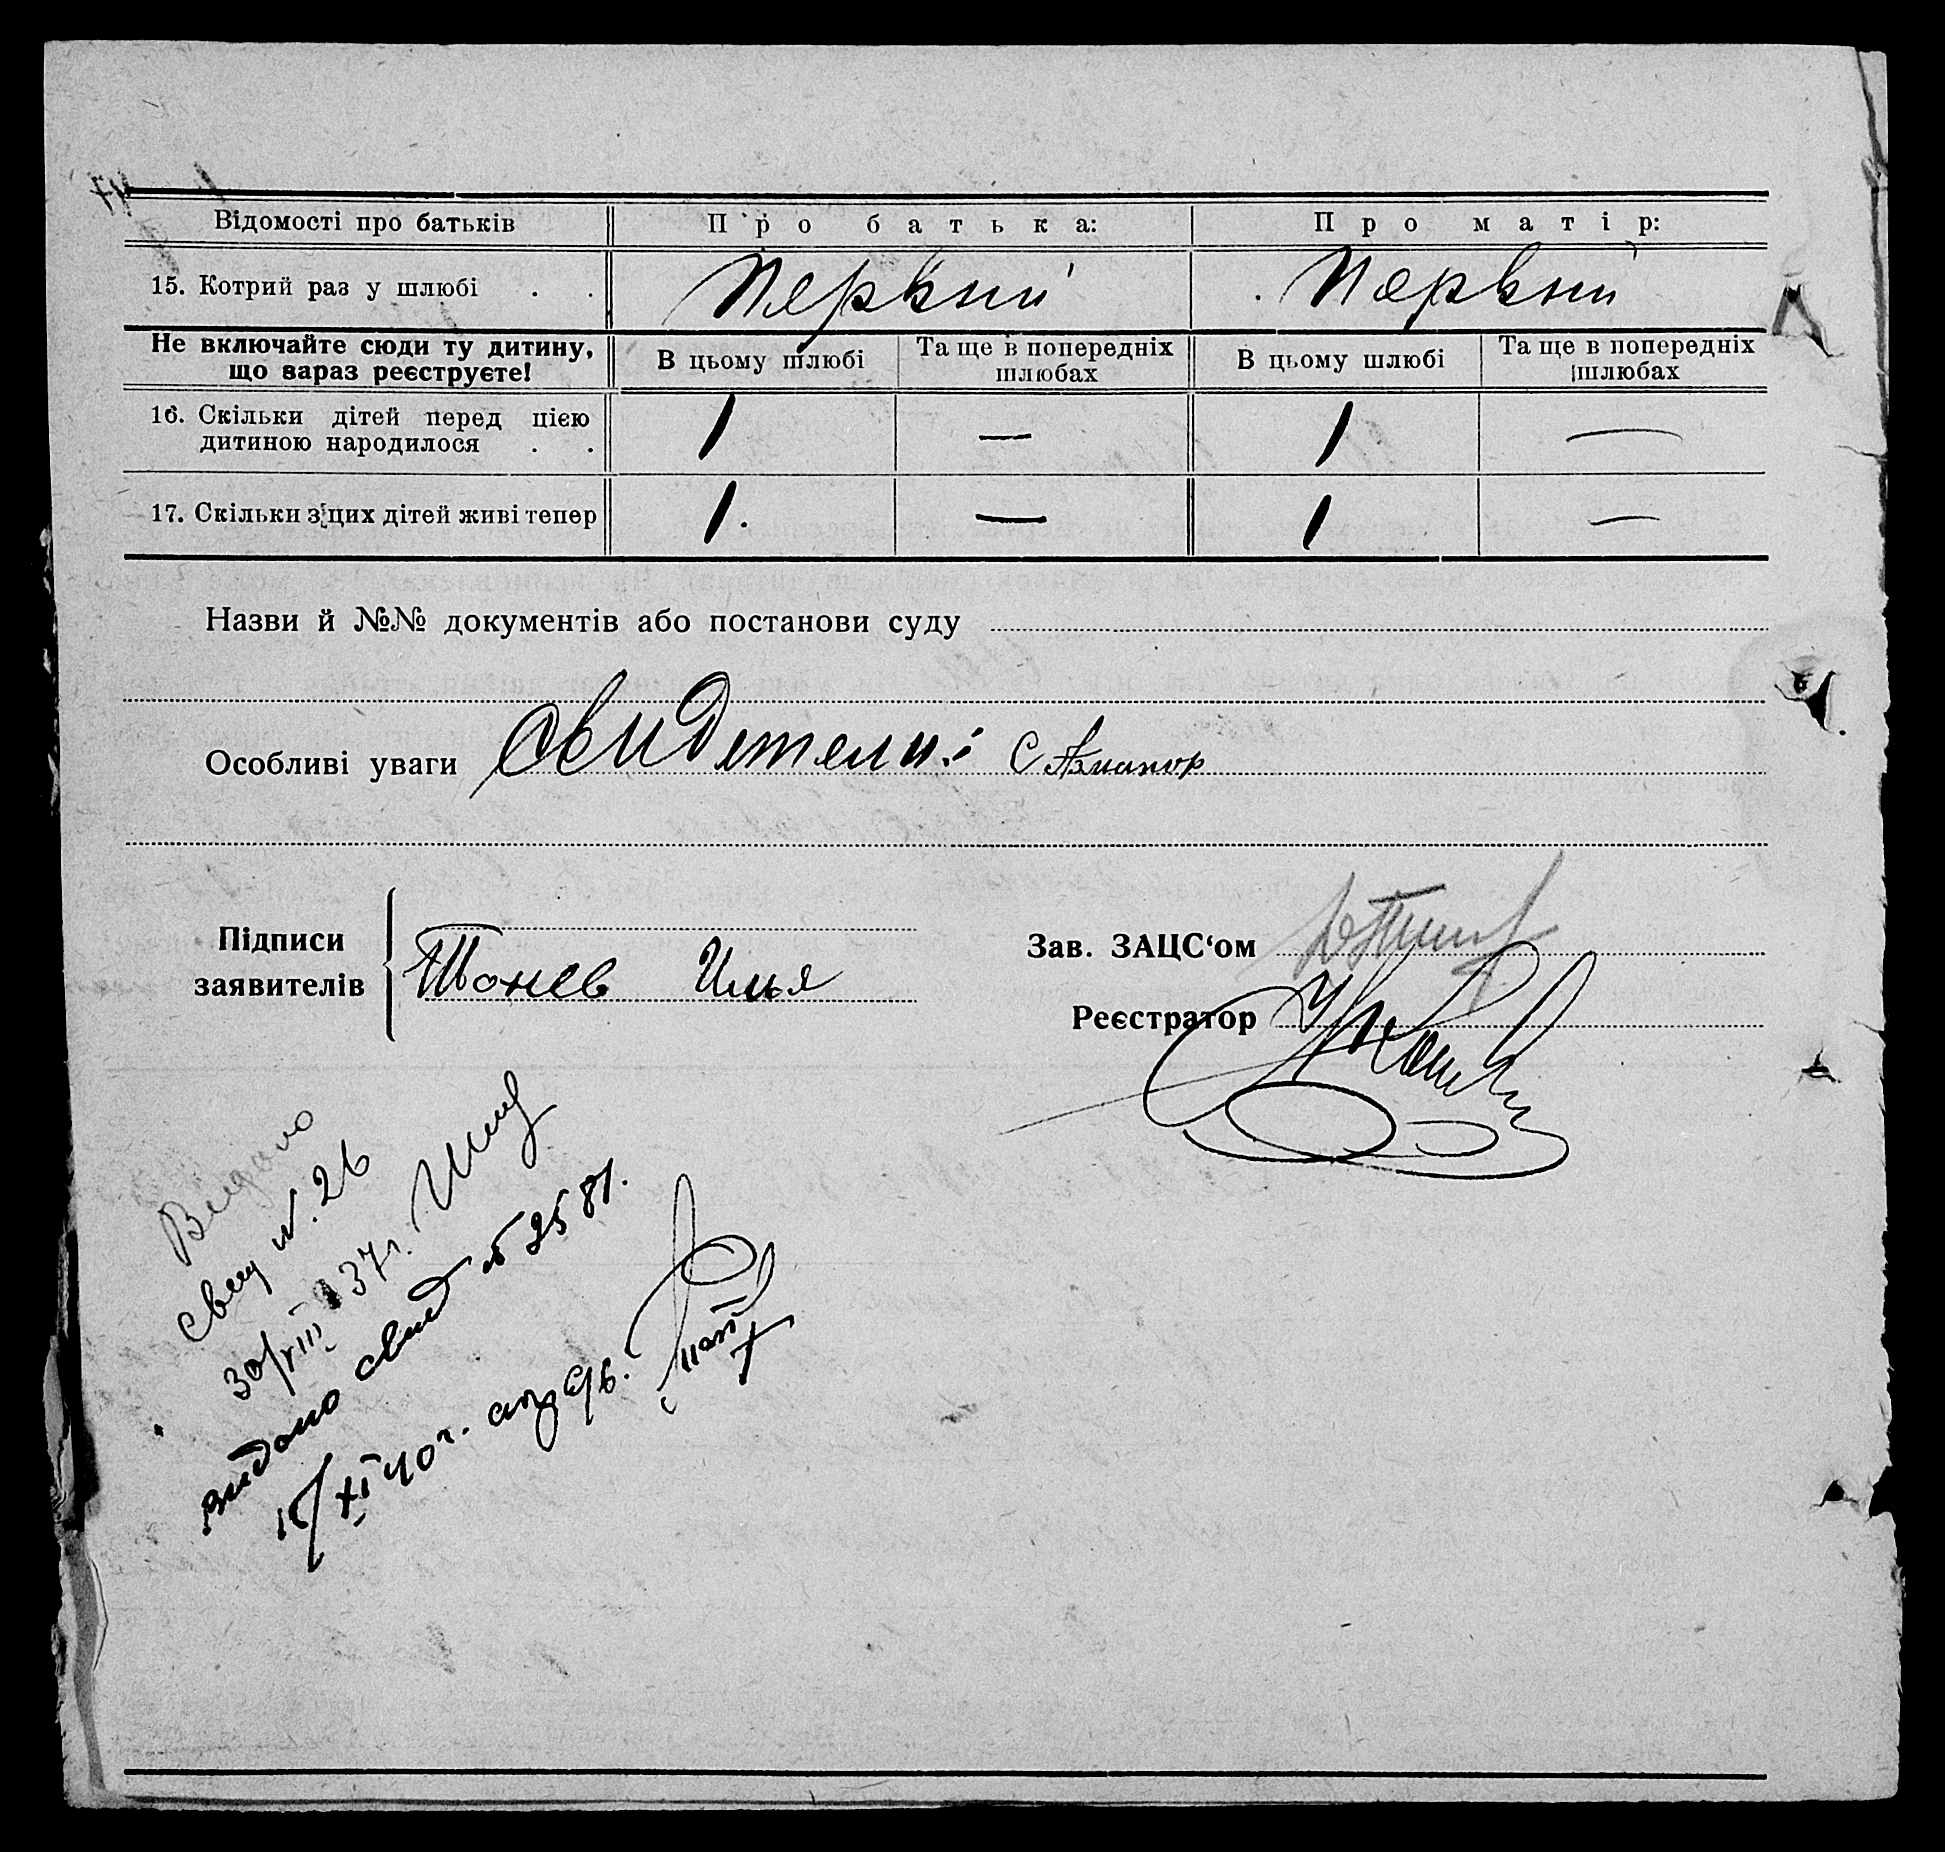 Відомості про батьків Про батька: Про матір:
15. Котрий раз у шлюбі . . Первый Первый
Не включайте сюди ту дитину, що зараз реєструєте! В цьому шлюбі Та ще в попередніх шлюбах В цьому шлюбі Та ще в попередніх шлюбах
16. Скільки дітей перед цією
дитиною народилося . . 1 — 1 —
17. Скільки з цих дітей живі тепер 1. — 1 —
Назви й №№ документів або постанови суду
Особливі уваги Свидетели: С
Підписи
заявителів Тонев Илья
Зав. ЗАЦС‘ом
Реєстратор
Видано
свид N. 26
30/VIII 37 г.
видано свид № 2581.
15/XI 40 г.